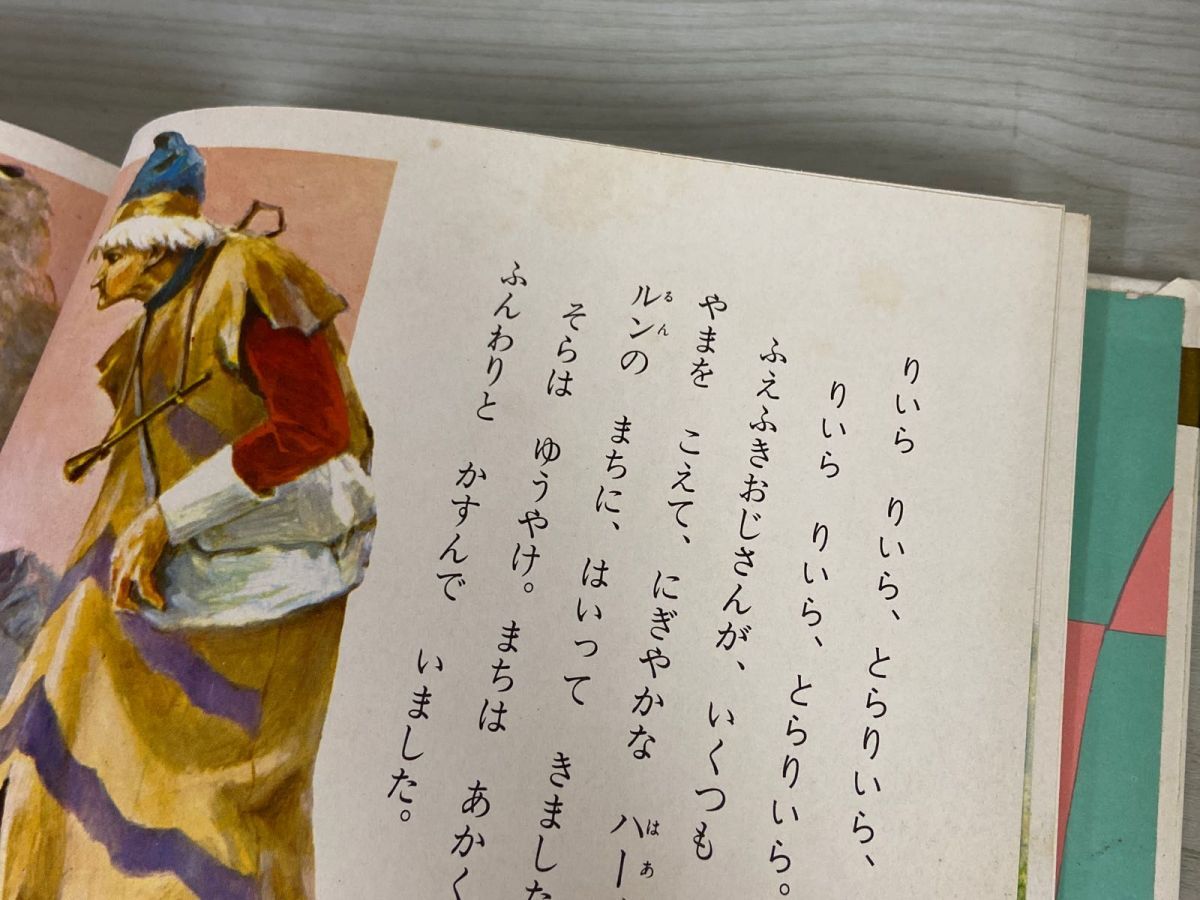 りいら りいら、とらりいら、
りいら りいら、とらりいら。
ふえふきおじさんが、いくつも
やまを こえて、にぎやかな ハー
はあ
ルンの まちに、はいって きました
るん
そらは ゆうやけ。まちは あかく
ふんわりと かすんで いました。